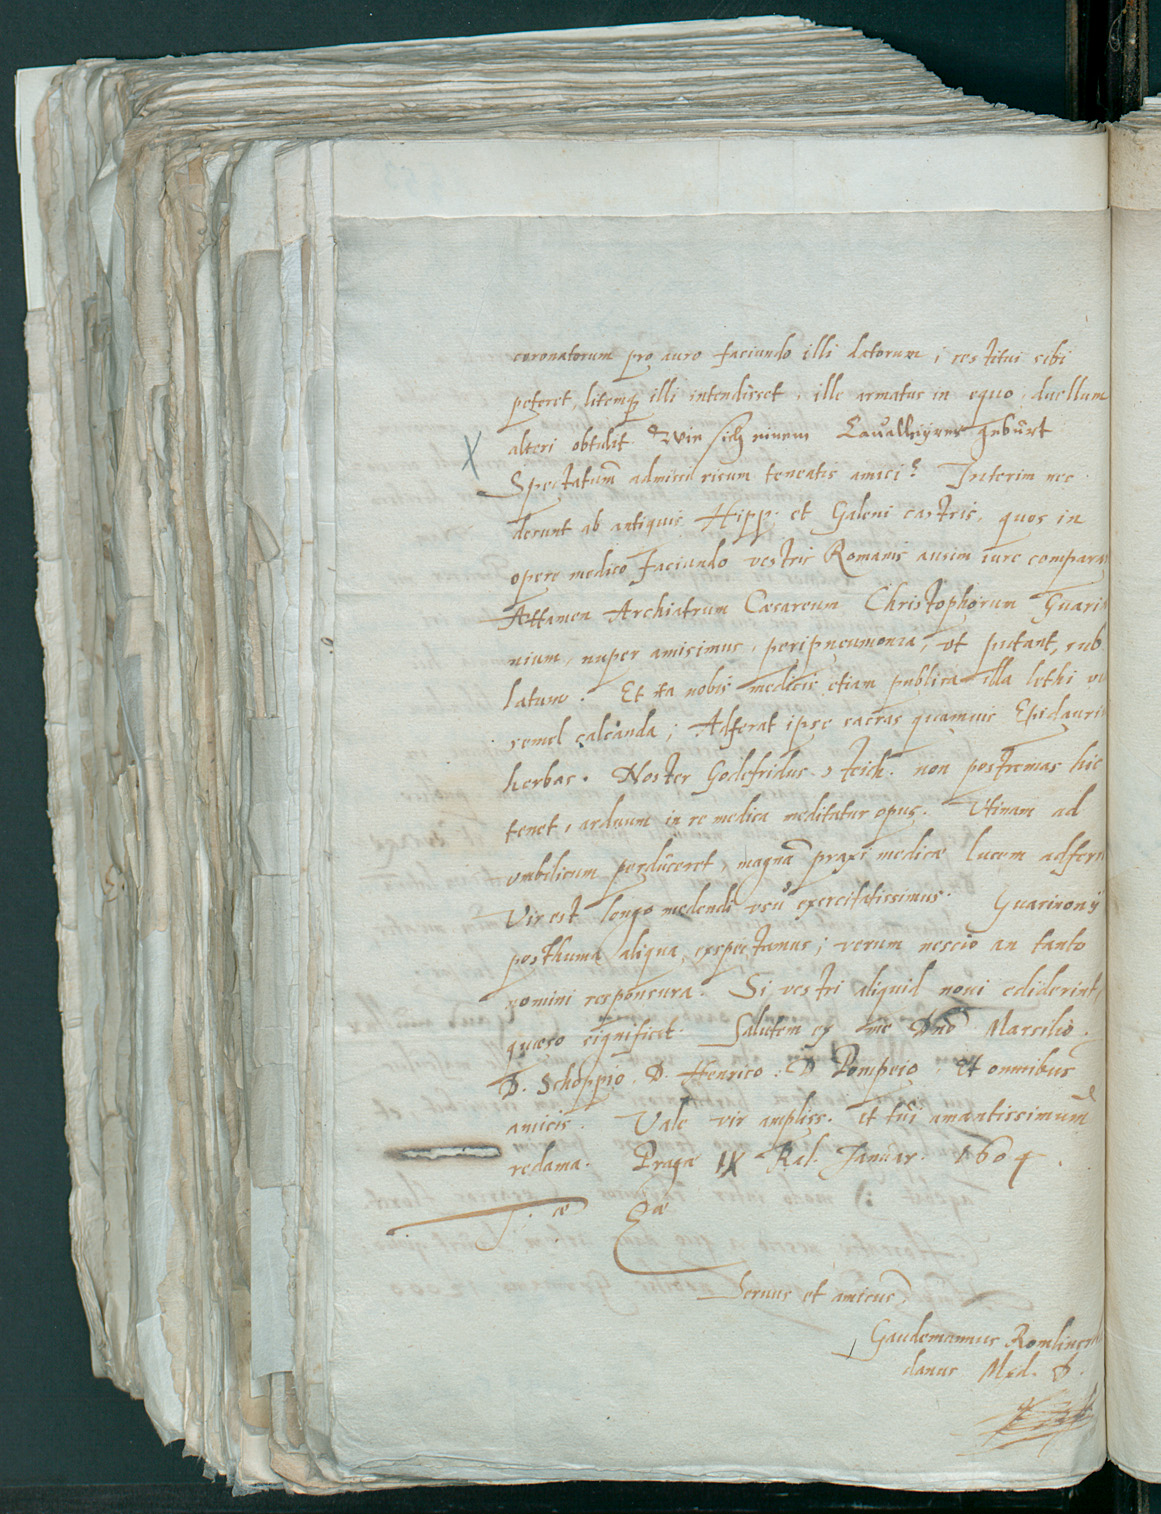 coronatorum pro auro faciundo illi datorum, restitui sibi
peteret, litemq; illi intendisset, ille armatus in equo, duellum
alteri obtulit. Wie sich einem gebürt
Spectatum admissi risum teneatis amici? Interim nec
derunt ab antiquis Hipp. et Galeni castris, quos in
opere medico faciundo vestris Romanis ausim iure compara
Attamen Archiatrum Caesareum Christophorum Guari
nium, nuper amisimus, peripneumonia, vt putant, sub
latum. Et ita nobis medicis etiam publica illa lethi vi
semel calcanda; Adferat ipse sacras quamuis Epidauri
herbas. Noster Godefridus Steich. non postremas hic
tenet, arduum in re medica meditatur opus. Vtinam ad
vmbilicum perduceret, magnã praxi medicae lucem adfer
Vir est longo medendi vsu exercitatissimus. Guarinonij
posthuma aliqua exspectamus; verum nescio an tanto
nomini responsura. Si vestri aliquid noui ediderint,
quaeso significet. Salutem ex me Dnõ Marsilio,
D. Schoppio, D. Henrico, D. Pompeio. Et omnibus
amicis. Vale vir ampliss. et tui amantissimum
redama. Pragae IX Kal. Januar. 1604.
T. ae Eae
Seruus et amicus
Gaudemannus
danus Med. D.